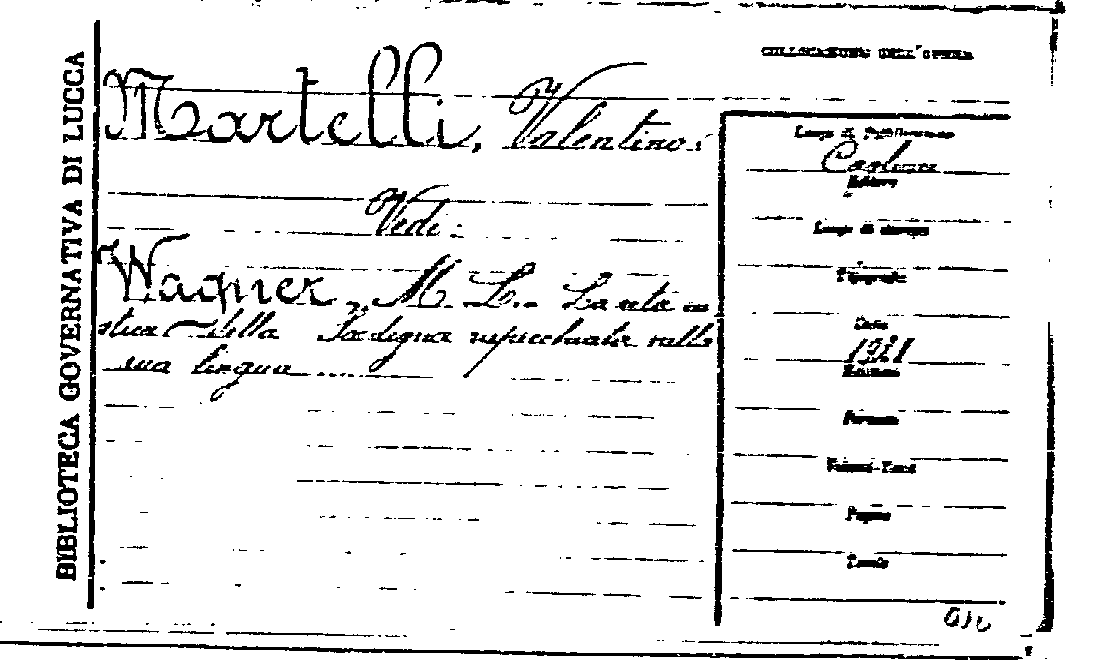 BIBLIOTECA GOVERNATIVA DI LUCCA
COLLOCAZIONE DELL'OPERA
Martelli, Valentino:
Vedi:
Wagner, M. L. - La vita ru
stica della Sardegna rispecchiata nella
sua lingua....
Luogo di Pubblicazione
Cagliari
Editore
Luogo di stampa
Tipografo
Data
1921
Edizione
Formato
Volumi-Tomi
Pagine
Tavole